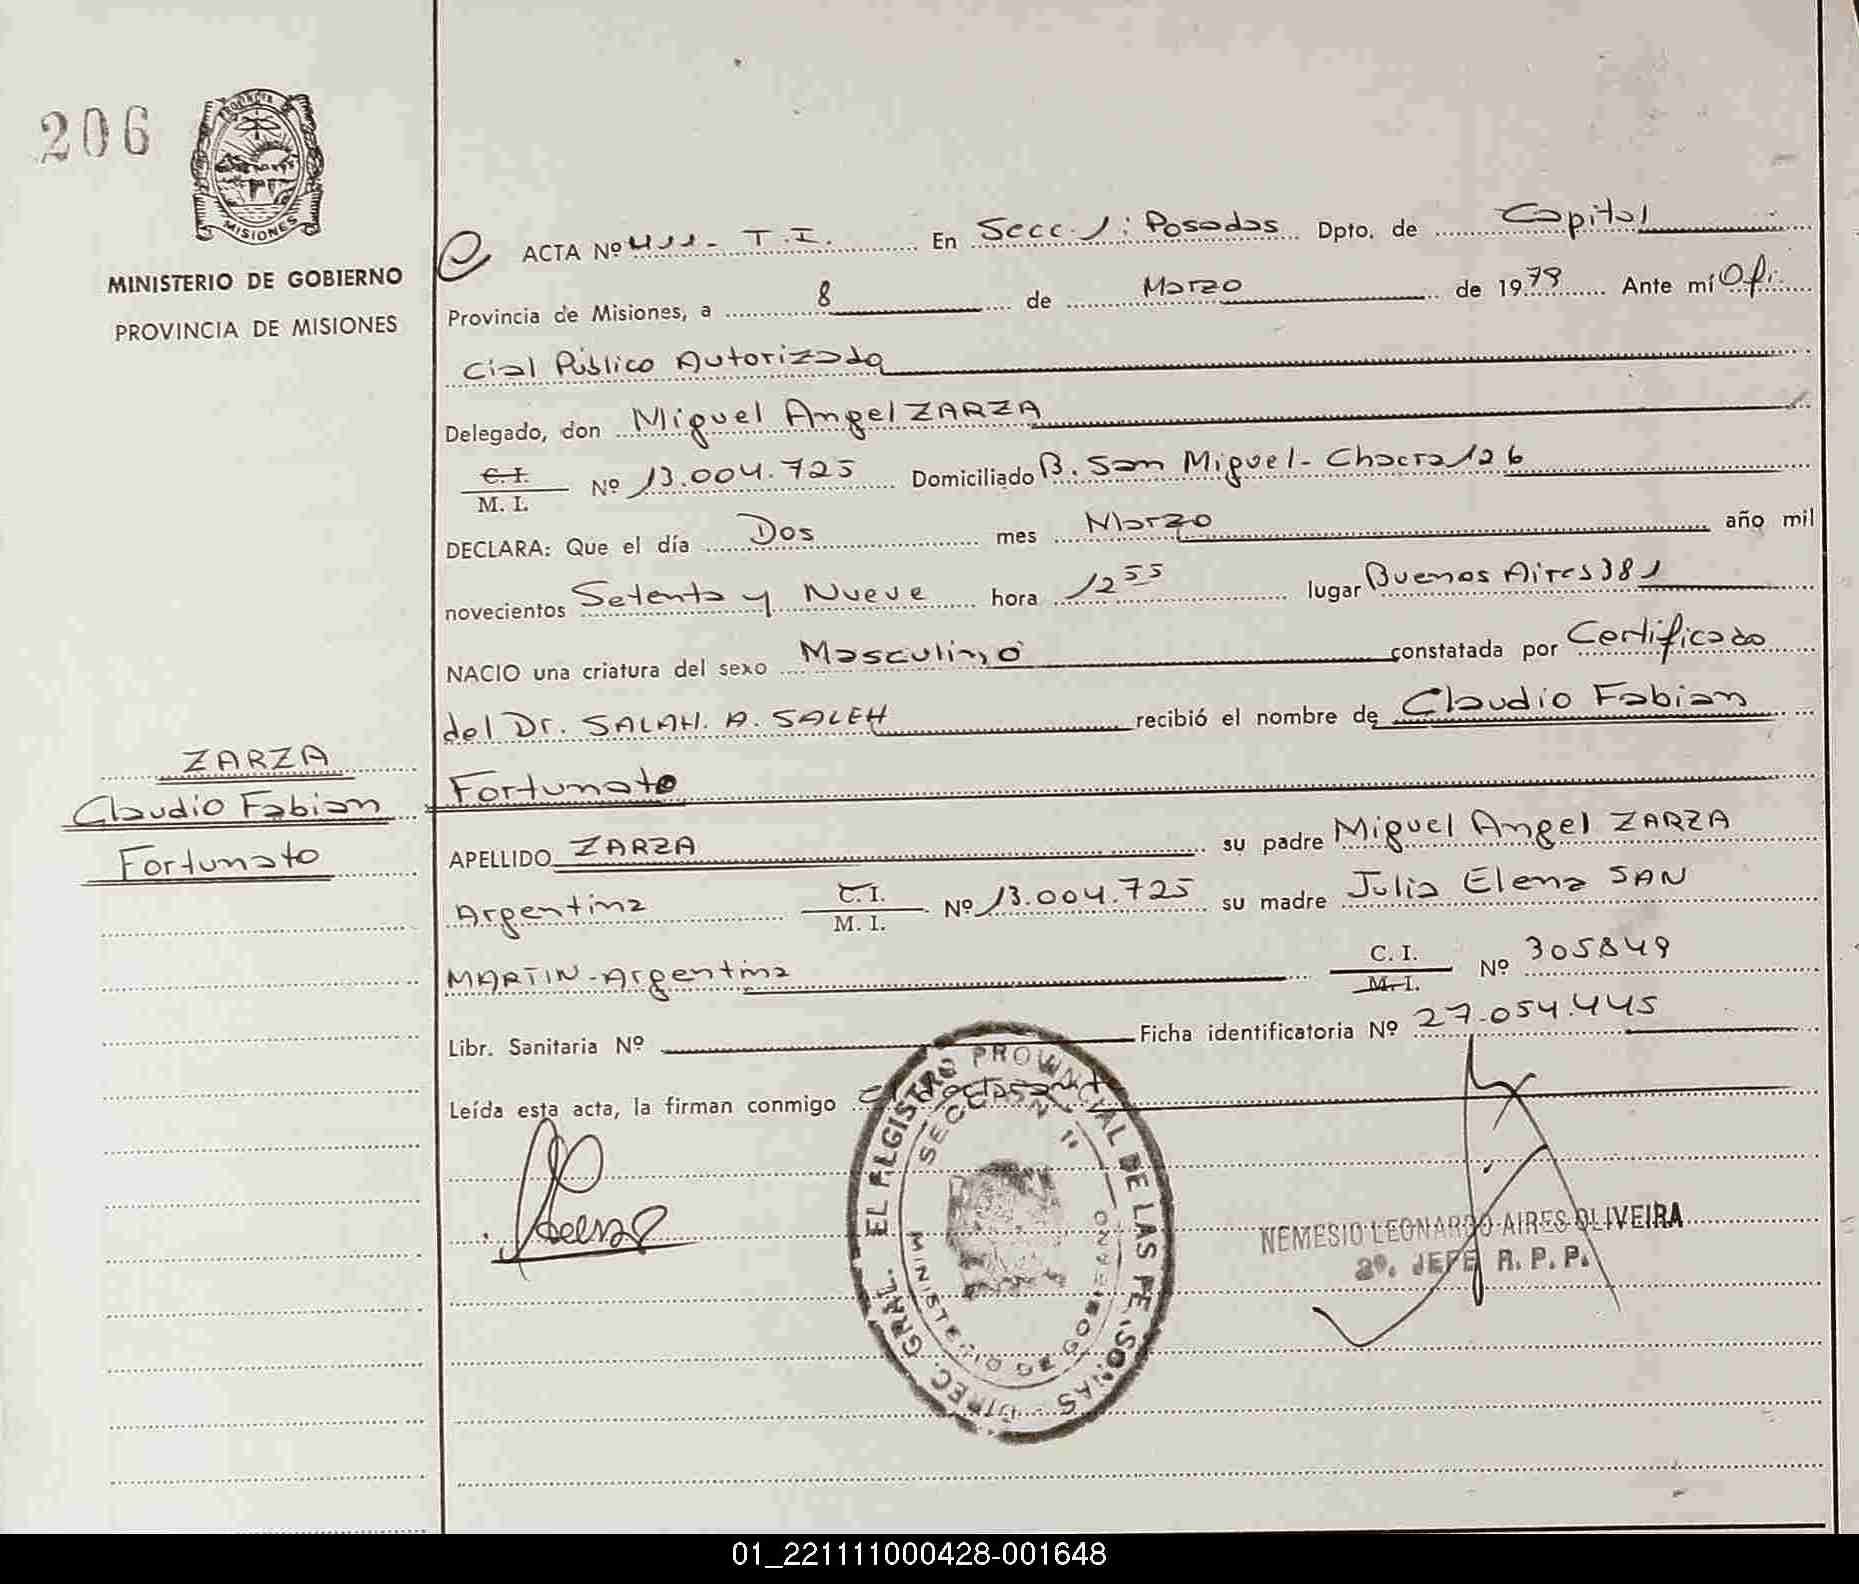 206
PROVINCIA
MISIONES
MINISTERIO DE GOBIERNO
PROVINCIA DE MISIONES
ACTA Nº 411- T.I. En Secc. 1: Posadas Dpto. de Capital
Provincia de Misiones, a 8 de Marzo de 1979 Ante mí Ofi
cial Público Autorizado
Delegado, don Miguel Angel ZARZA
C.I.
M. I.
Nº 13.004.725 Domiciliado B. San Miguel- Chacra 126
DECLARA: Que el día Dos mes Marzo año mil
novecientos Setenta y Nueve hora 12 55 lugar Buenos Aires 381
NACIO una criatura del sexo Masculino constatada por Certificado
del Dr. SALAH. A. SALEH recibió el nombre de Claudio Fabian
Fortunato
ZARZA
Claudio Fabian
Fortunato
APELLIDO ZARZA su padre Miguel Angel ZARZA
Argentina C.I. M. I. Nº 13.004.725 su madre Julia Elena SAN
MARTIN-Argentina C. I. M.I. Nº 305849
Libr. Sanitaria Nº Ficha identificatoria Nº 27.054.445
Leída esta acta, la firman conmigo
DIREC. GRAL. EL REGISTRO PROVINCIAL DE LAS PERSONAS
SECCION 1ª
MINISTERIO DE GOBIERNO
NEMESIO LEONARDO AIRES OLIVEIRA
2º. JEFE R. P. P.
01_221111000428-001648